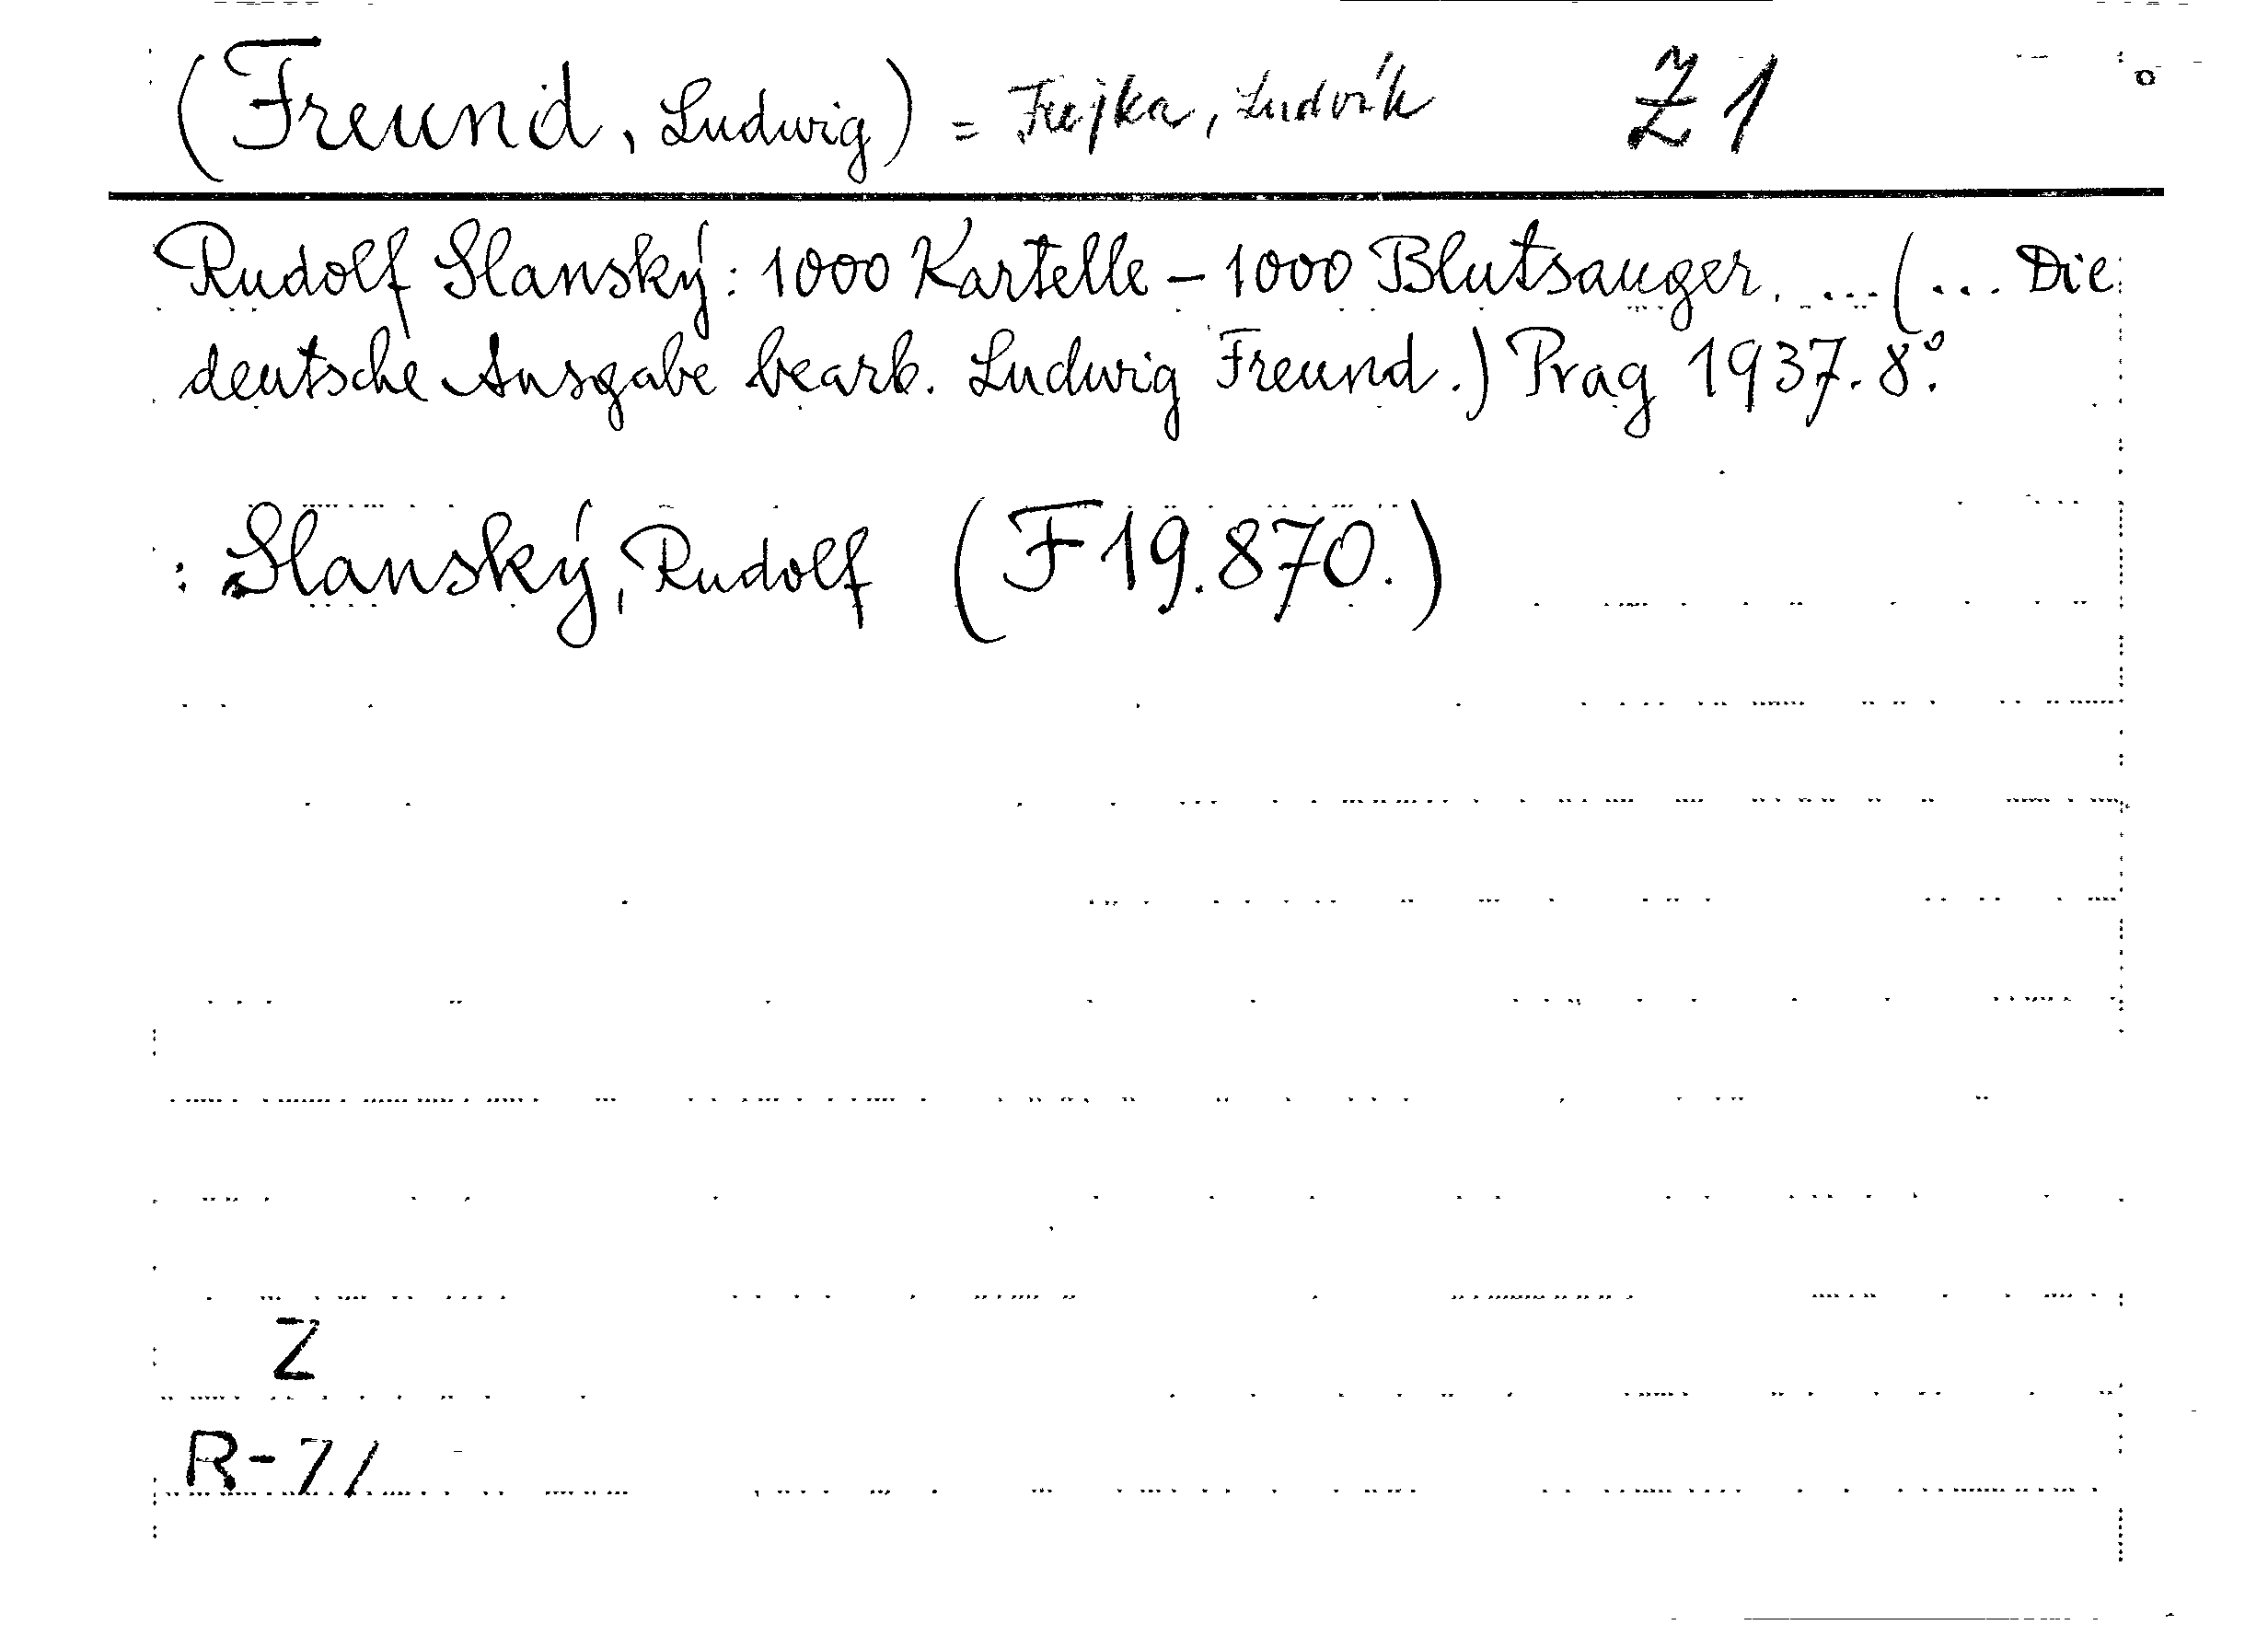 (Freund, Ludwig) = Frejka, Ludvík Z1
Rudolf Slanský: 1000 Kartelle – 1000 Blutsauger. ... (... Die
deutsche Ausgabe bearb. Ludwig Freund.) Prag 1937. 8°.
: Slanský, Rudolf (F 19.870.)
Z
R-71